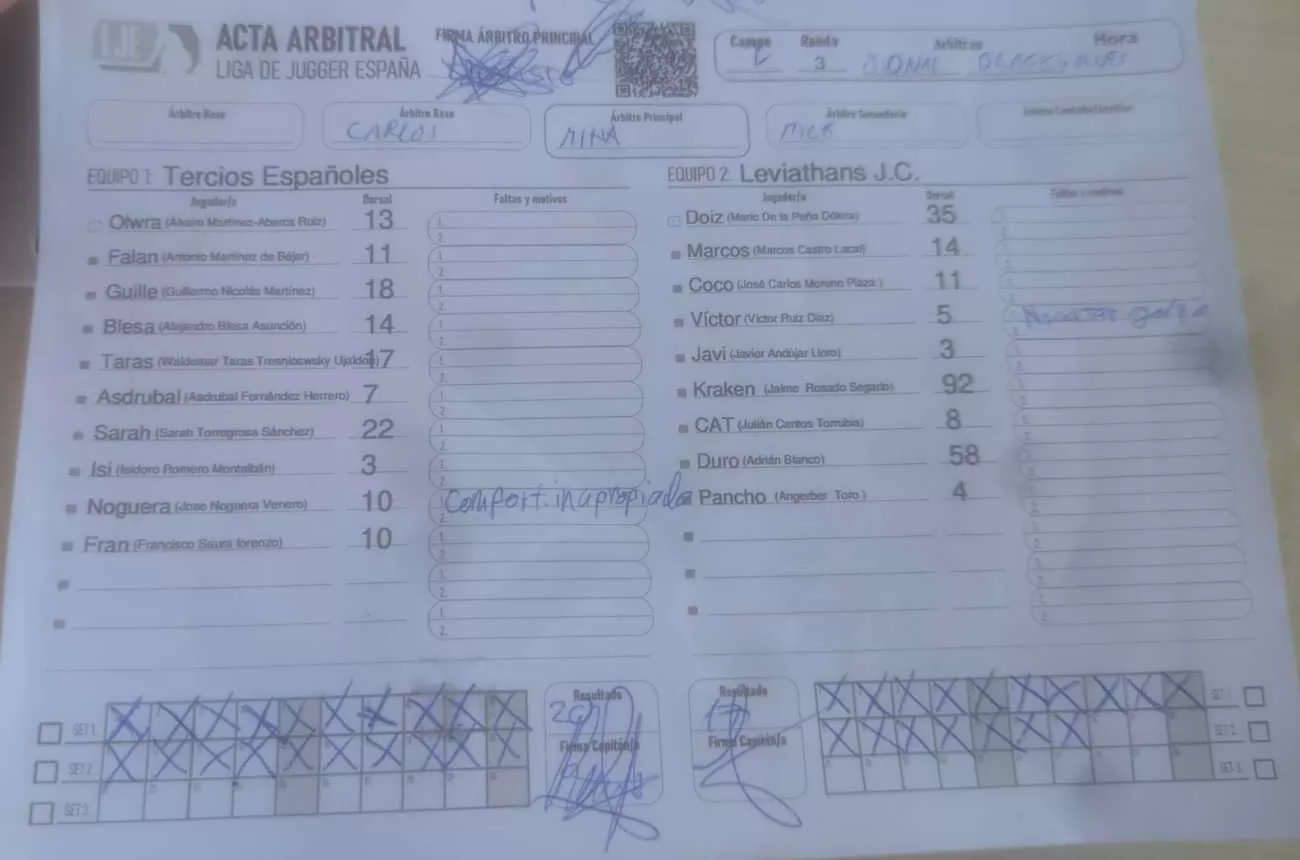 LJE ACTA ARBITRAL
LIGA DE JUGGER ESPAÑA
FIRMA ÁRBITRO PRINCIPAL
Campo Ronda Árbitros Hora
3
Árbitro Base
Árbitro Base
CARLOS
Árbitro Principal
MINA
Árbitro Secundario
MICK
EQUIPO 1: Tercios Españoles
Jugador/a Dorsal Faltas y motivos
Olwra (Álvaro Martínez-Abarca Ruiz) 13
Falan (Antonio Martínez de Béjar) 11
Guille (Guillermo Nicolás Martínez) 18
Blesa (Alejandro Blesa Asunción) 14
Taras (Waldemar Taras 17
Asdrubal (Asdrubal Fernández Herrero) 7
Sarah (Sarah Torregrosa Sánchez) 22
Isi (Isidoro Romero Montalbán) 3
Noguera (Jose Noguera Venero) 10 Comport. inapropiado
Fran (Francisco Saura lorenzo) 10
EQUIPO 2: Leviathans J.C.
Jugador/a Dorsal Faltas y motivos
Doiz (Mario De la Peña Dólera) 35
Marcos (Marcos Castro Lacal) 14
Coco (José Carlos Moreno Plaza ) 11
Víctor (Víctor Ruiz Díaz) 5
Javi (Javier Andújar Lloro) 3
Kraken (Jaime Rosado Segado) 92
CAT (Julián Cantos Torrubia) 8
Duro (Adrián Blanco) 58
Pancho (Angerber Toro ) 4
SET 1
SET 2
SET 3
Resultado
20
Firma Capitán/a
Resultado
17
Firma Capitán/a
SET 1
SET 2
SET 3